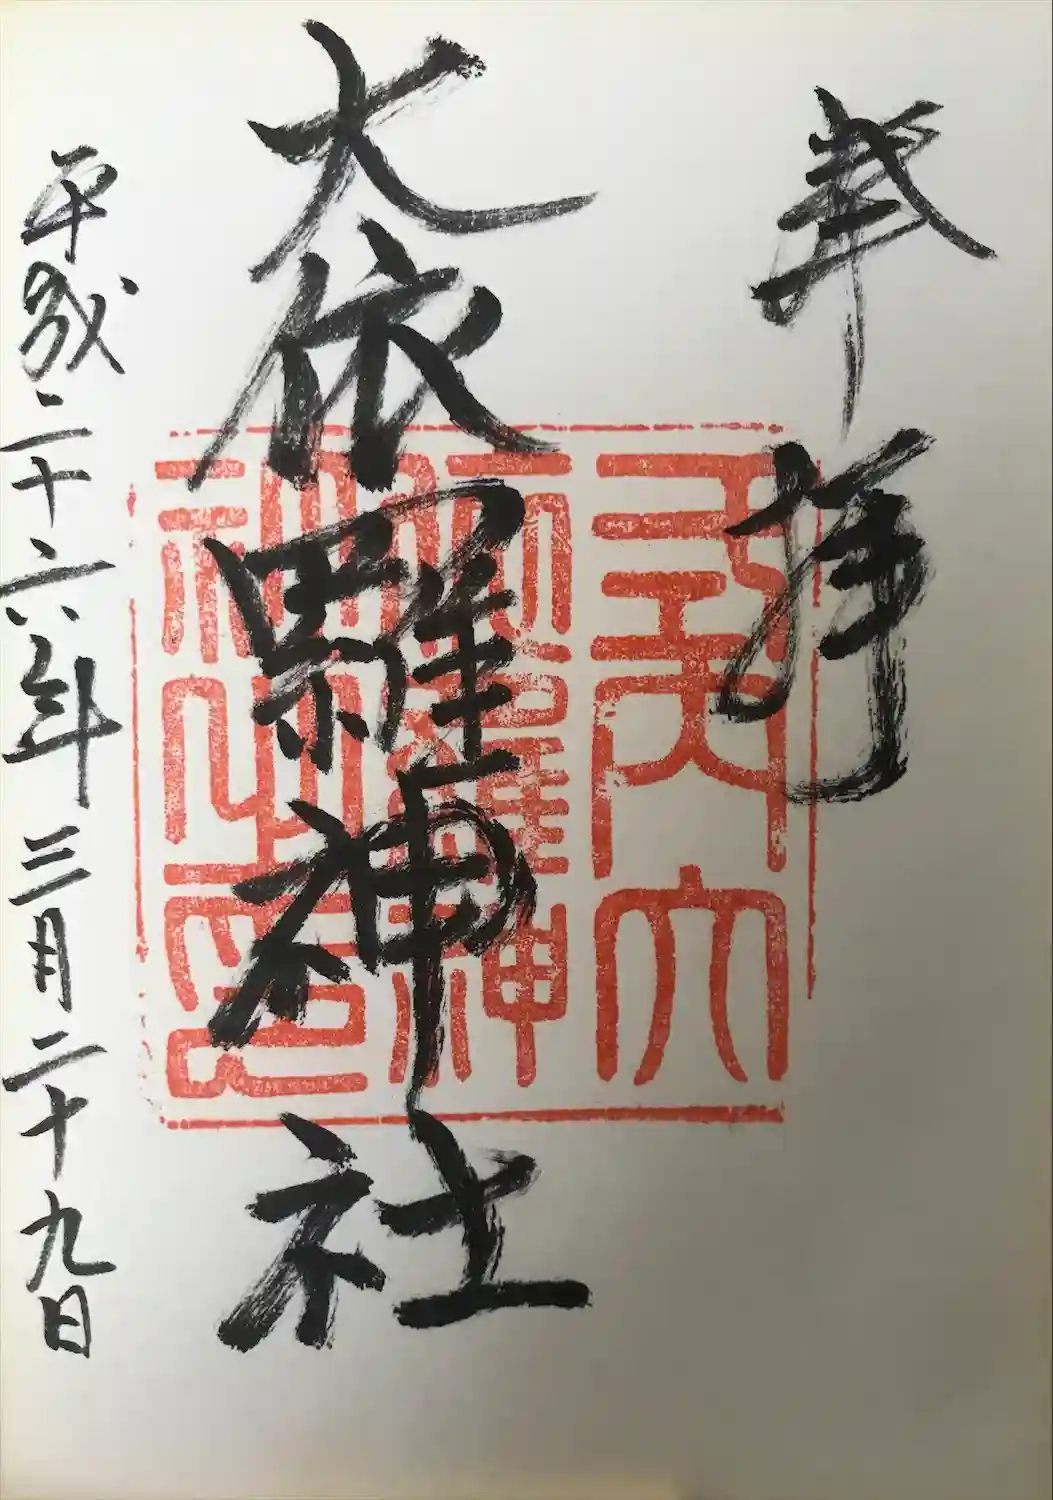 奉拝
大依羅神社
平成二十六年三月二十九日
式内大
依羅神
社之印